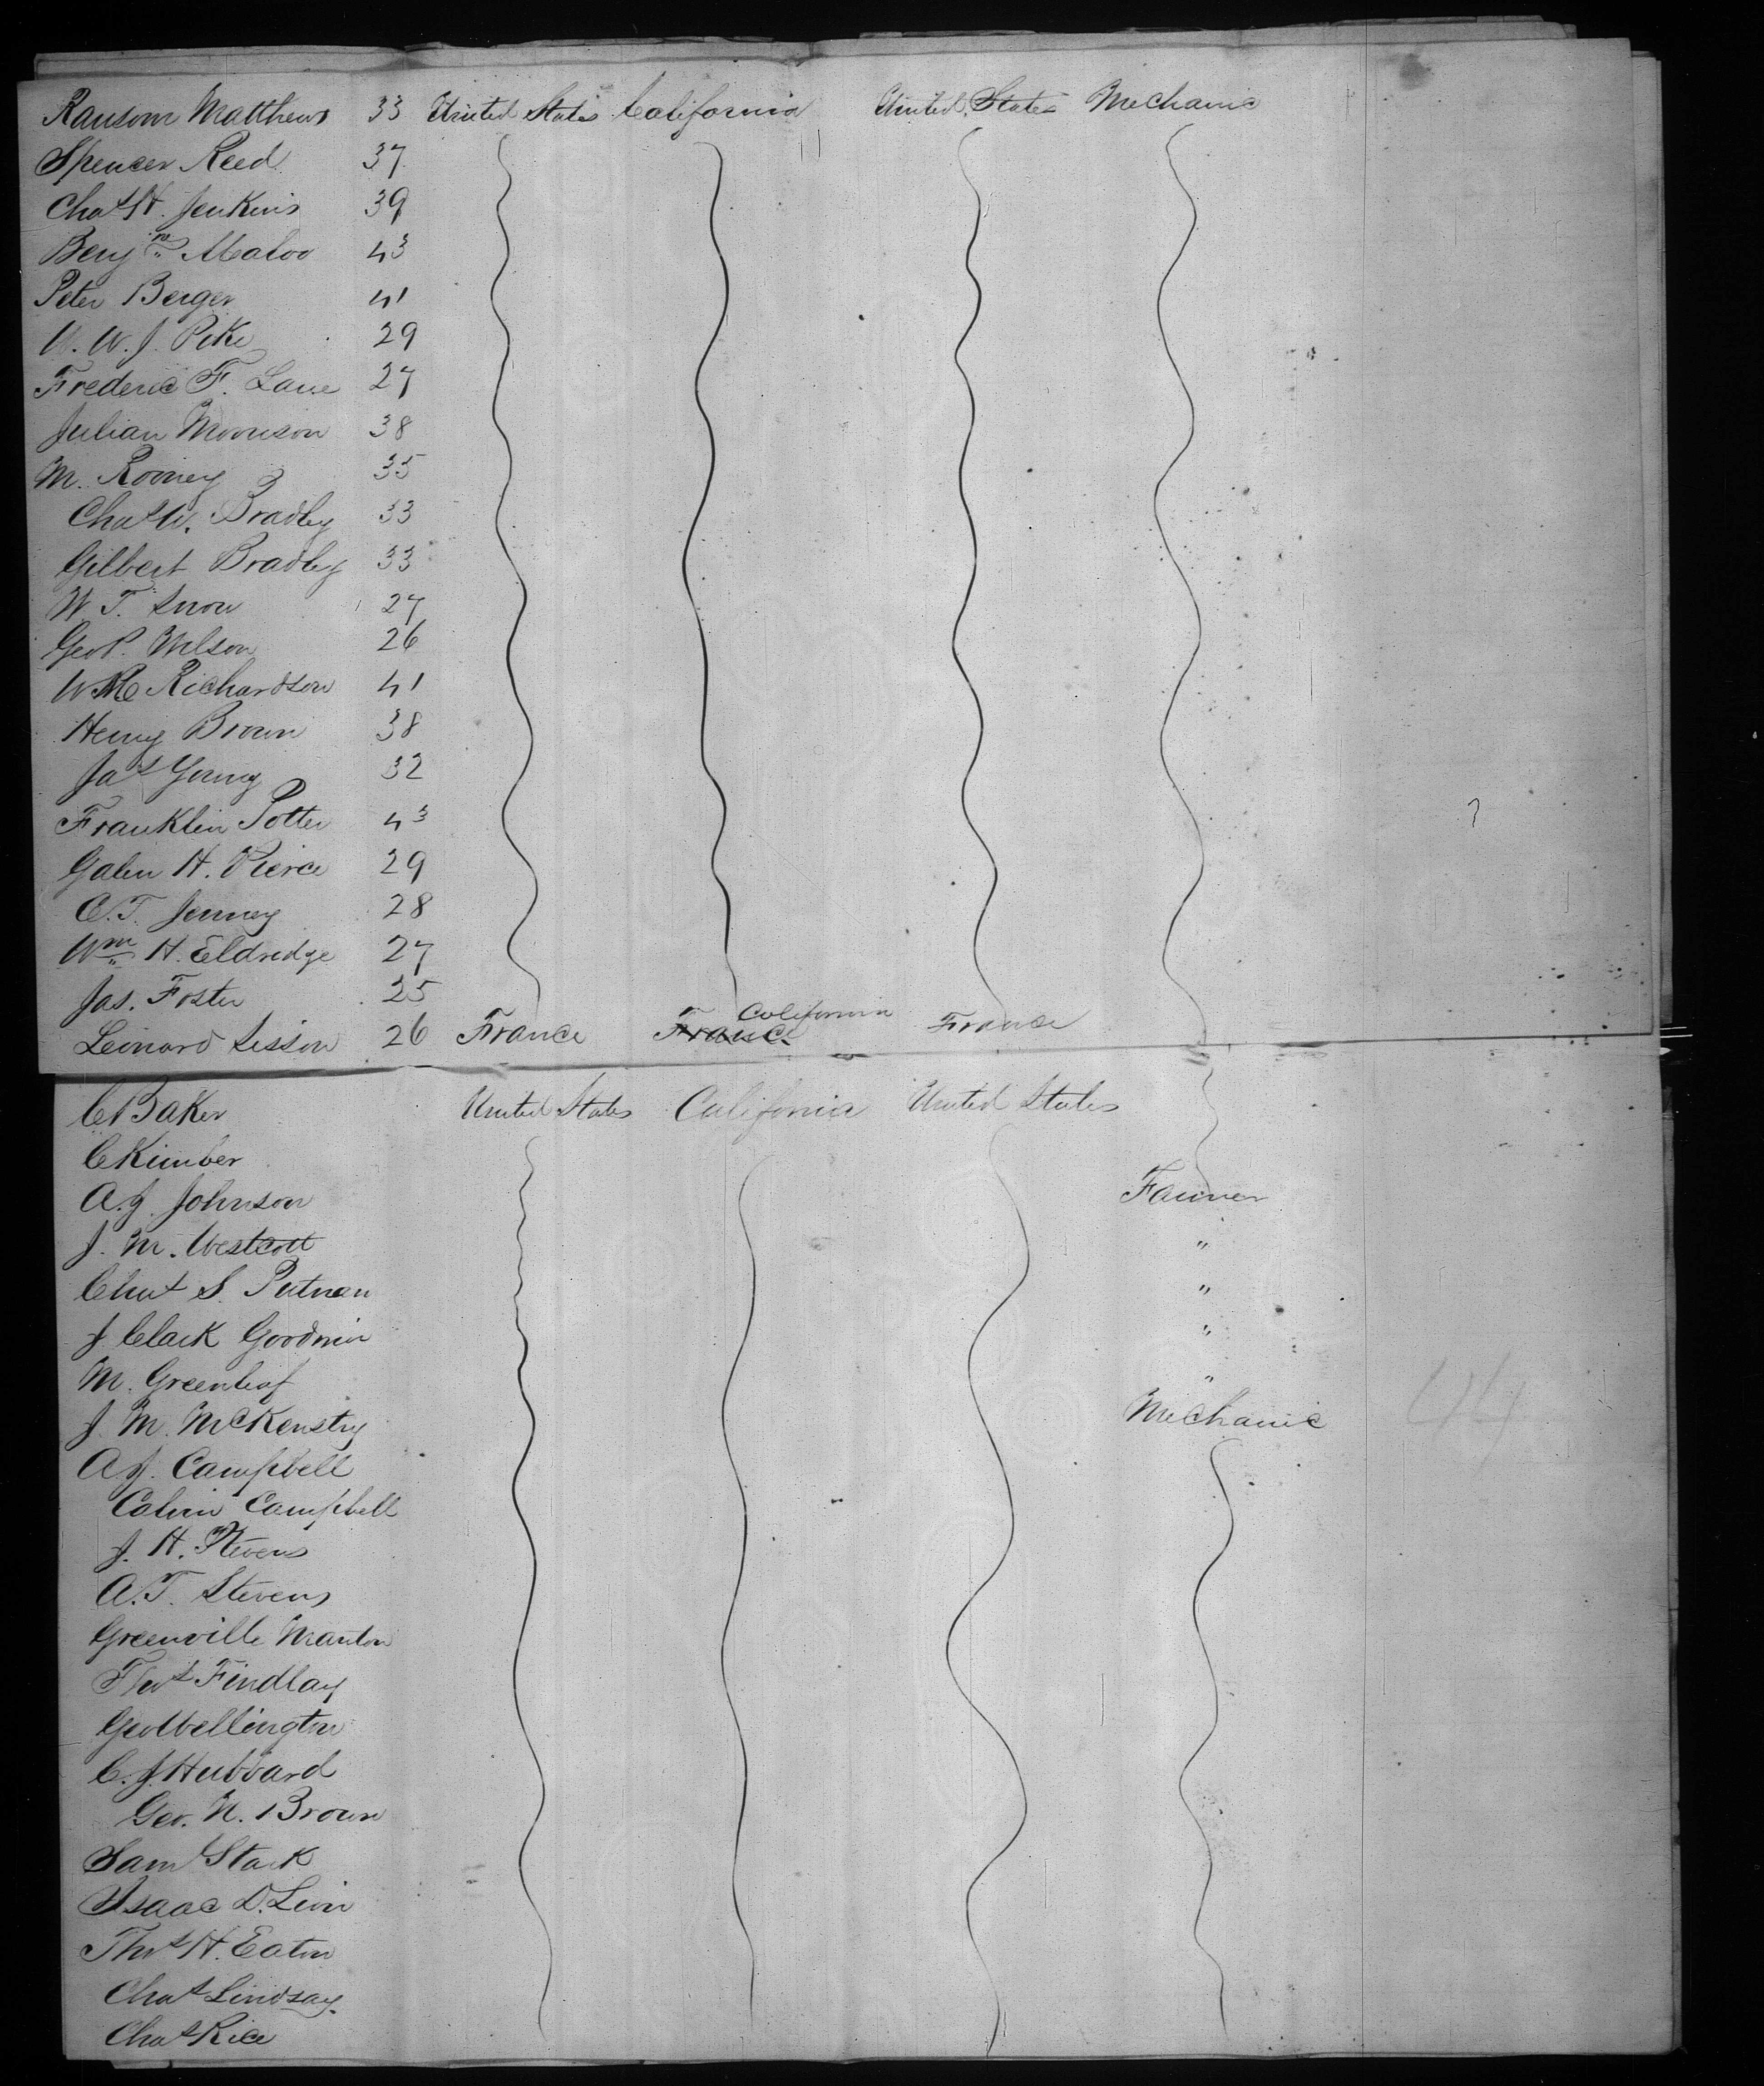 Ransom Matthews 33 United States California United States Mechanic
Spencer Reed 37
Chas H. Jenkins 39
Benjn 43
Peter Berger 41
W. J. Pike 29
Frederic F. Lane 27
Julian Morrison 38
M. Rooney 35
Chas W. Bradley 33
Gilbert Bradley 33
W. T. Snow 27
Geo P. Wilson 26
Richardson 41
Henry Brown 38
Jas Young 32
Franklin Potter 43
Galen H. Pierce 29
C. T. Jenney 28
Wm H. Eldredge 27
Jas. Foster 25
California
Leinard Sisson 26 France France France
C Baker United States California United States
C Kimber
A. J. Johnson Farmer
J. M. Westcott "
Chas S. Putnam "
J Clark Goodwin "
M. Greenleaf "
J. M. McKenstry Mechanic
A J. Campbell
Calvin Campbell
J. H. Stevens
A. T. Stevens
Greenville Manton
Thos Findlay
Geo Wellington
C. J. Hubbard
Geo. N. Brown
Saml Stark
Isaac D.
Thos H. Eaton
Chas Lindsay.
Chas Rice